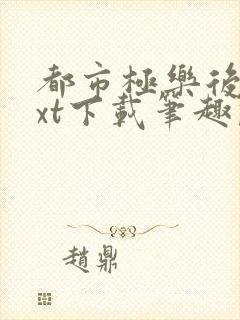 都市極樂後
xt下載筆趣
趙鼎